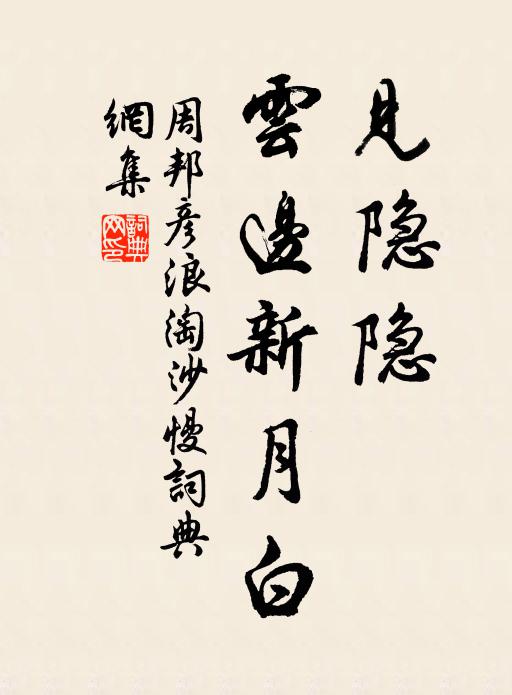 見隐隐
雲邊新月白
周邦彦浪淘沙慢詞典
網集
詞典
网印